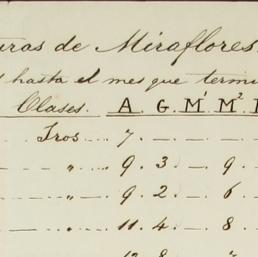 uras de Miraflores.
hasta el mes que termi
Clases. A. G. M¹ M²
Tros 7. — . — . —
" 9. 3. — . 9. —
" 9. 2. — . 6. —
" 11. 4. — . 8. —